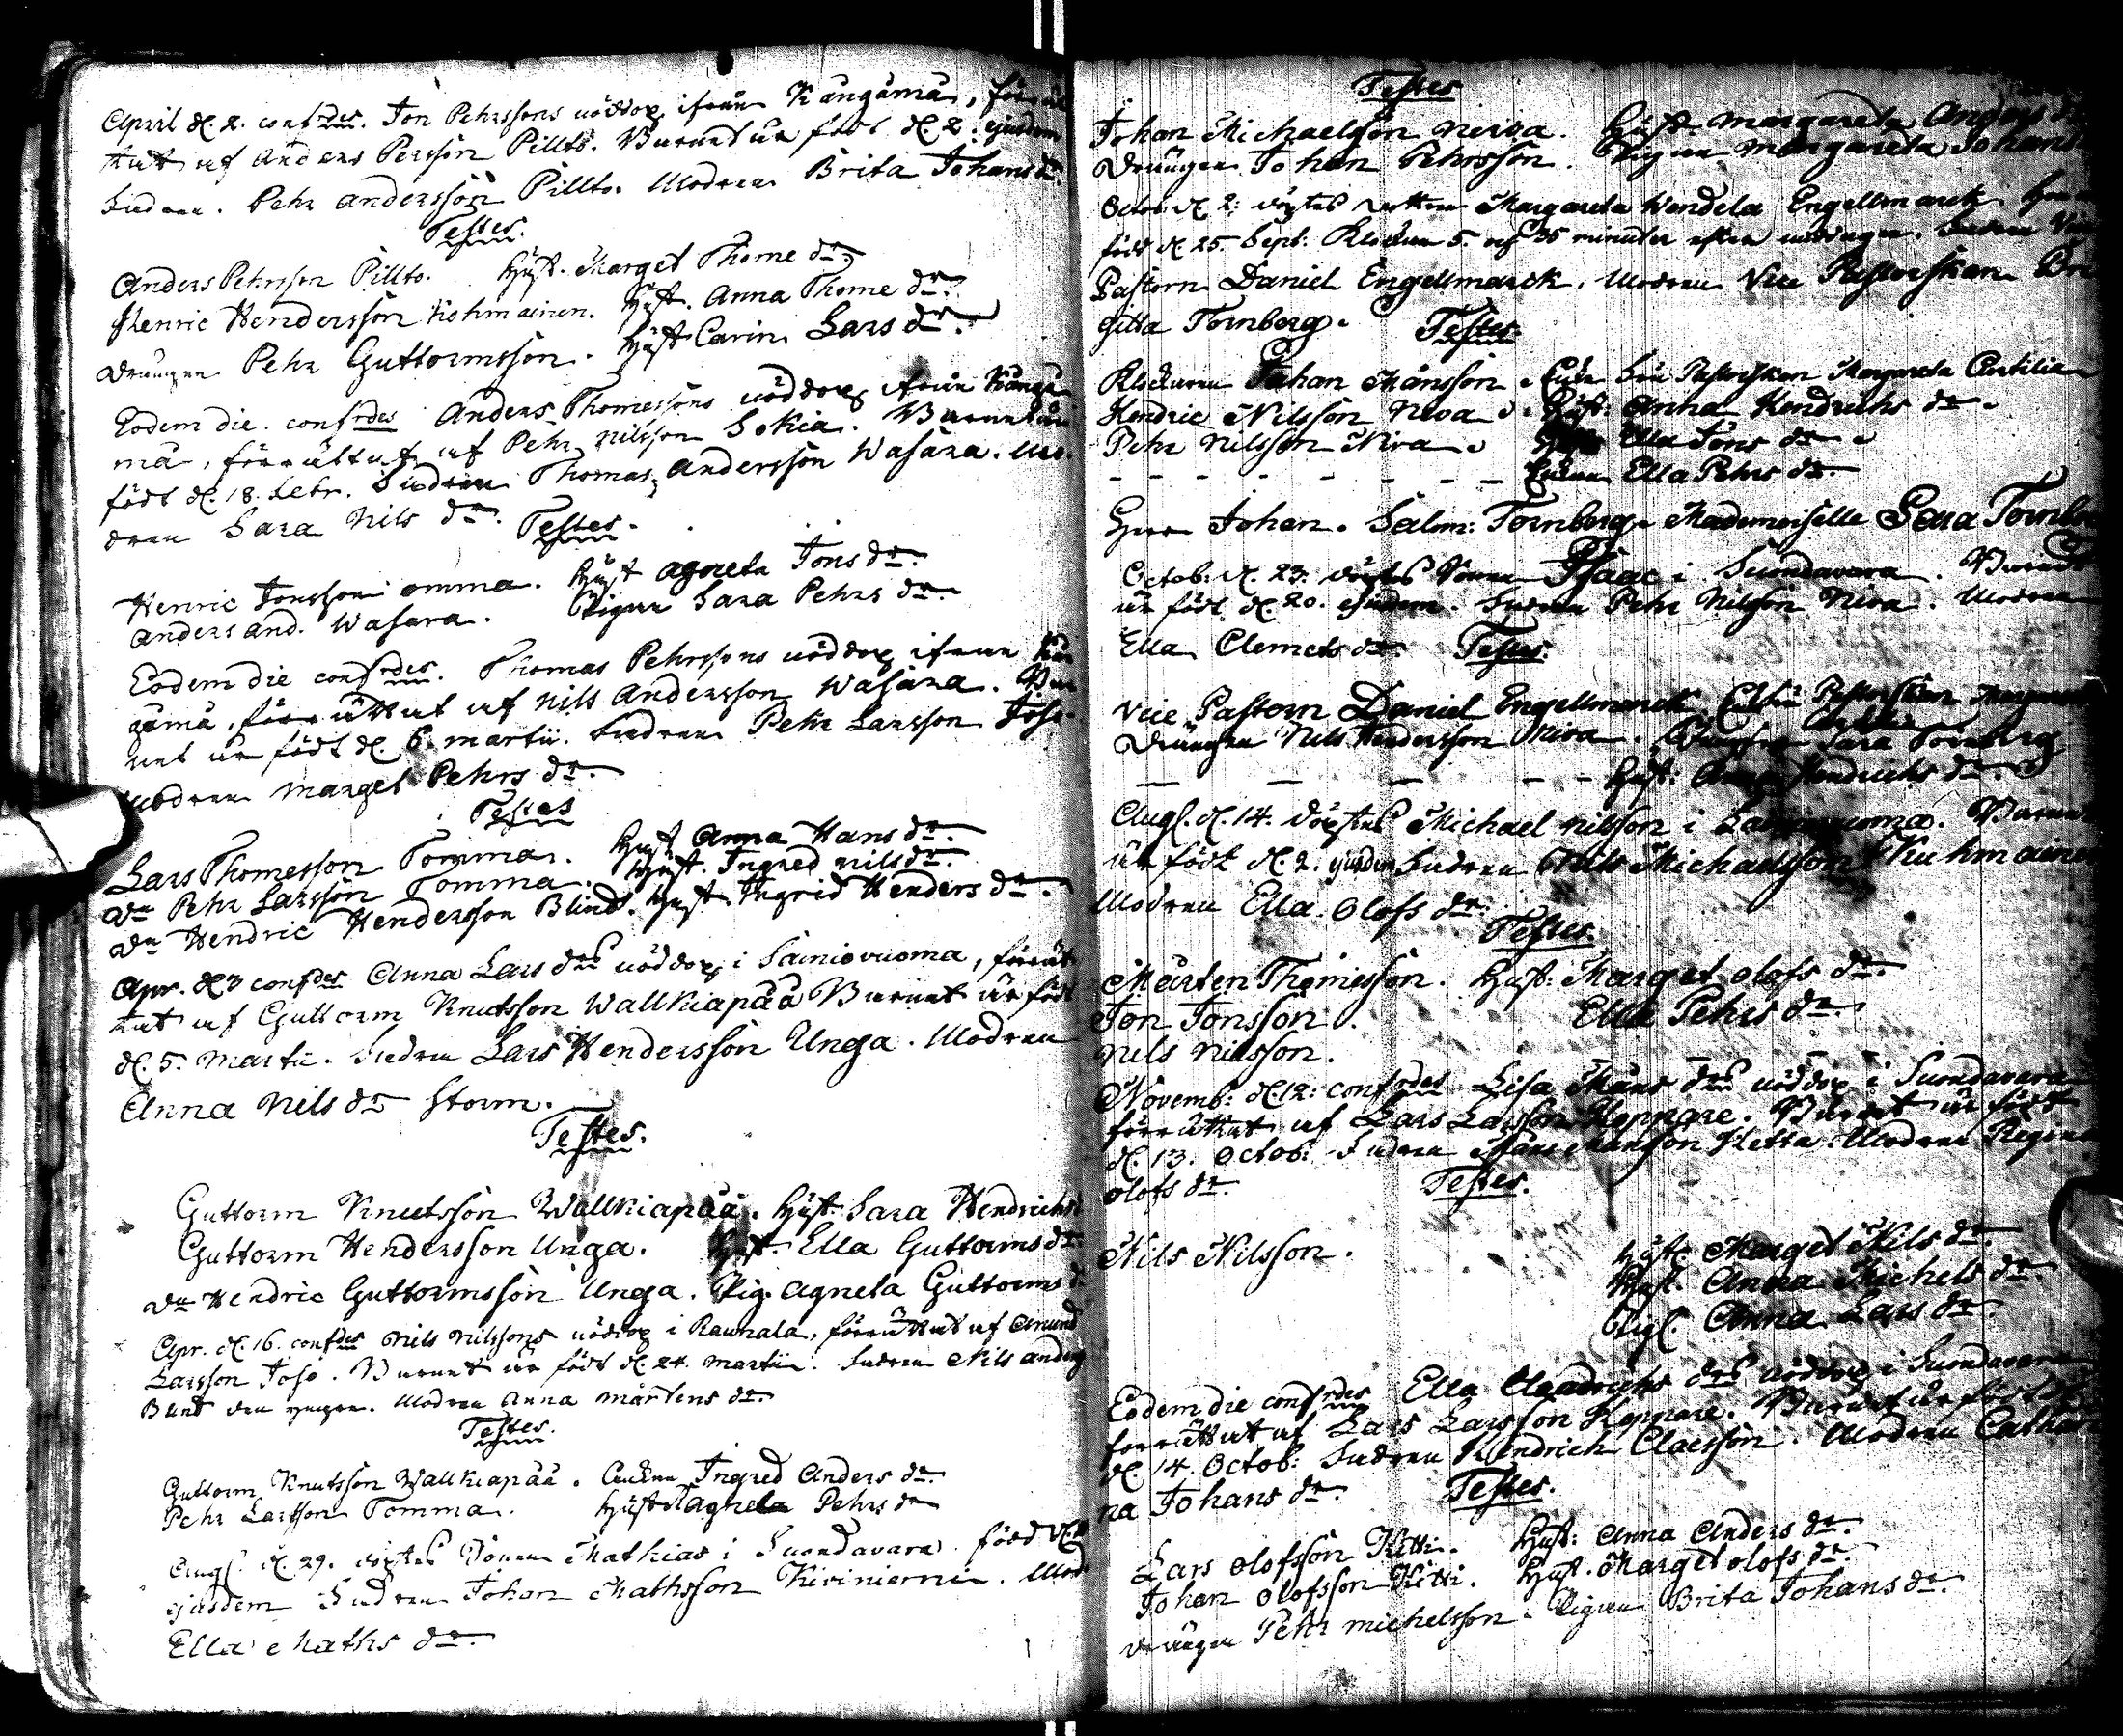 April d. 2. confrdes. Jon Pehrssons nöddop ifrån Kångämä, förrät
tat af Anders Persson Pillto. Barnet är född d. 2. ejusdem
Fadren. Pehr Andersson Pillto. Modren Brita Johans dr.
Testes.
Anders Pehrsson Pillto. Hust. Marget Thome dr.
Henric Hendersson Kohmainen. Hust. Anna Thome dr.
Drängen Pehr Guttormsson. Hust Carin Lars dr.
Eodem die. confrdes Anders Thomessons nöddop ifrån Kångä
mä, förrättat af Pehr Nilsson Sokia. Barnet är
födt d. 18. Febr. Fadren Thomas Andersson Wasara. Mo-
dren Sara Nils dr. Testes.
Henric Jonsson omma. Hust Agneta Jons dr.
Anders And. Wasara. Pigan Sara Pehrs dr.
Eodem die confrdes. Thomas Pehrssons nöddop ifrån Kån
gämä, förrättat af Nils Andersson Wasara. Bar
net är födt d. 6. martii. Fadren Pehr Larsson Joso.
Modren Marget Pehrs dr.
Testes
Lars Thomesson Tomma. Hust Anna Hans dr.
Dn Pehr Larsson Tomma. Hust. Ingred Nils dr.
Dn Hendric Hendersson Blind. Hust. Ingrid Henders dr.
Apr. d. 3 confdes Anna Lars drs nöddop i Sainiovuoma, förrät
tat af Guttorm Knutsson Wallkiapää Barnet är född
d. 5. Martii. Fadren Lars Hendersson Unga. Modren
Anna Nils dr Storm.
Testes.
Guttorm Knutsson Wallkiapää. Hust Sara Hendrichs
Guttorm Hendersson Unga. Hust. Ella Guttorms dr.
Dn Hendric Guttormsson Unga. Pig. Agneta Guttorms d
Apr. d. 16. confdes Nils Nilssons nöddop i Raunala, förrättat af Amund
Larsson Joso. Barnet är födt d. 24. martii. Fadren Nils Anders
Blind den yngre. Modren Anna Mårtens dr.
Testes.
Guttorm Knutsson Wallkiapää. Enkan Ingred Anders dr.
Pehr Larsson Tomma. Hust Agneta Pehrs dr
Aug. d. 29. döptes Sonen Mathias i Suondavara. född d.
ejusdem Fadren Johan Mathsson Kiviniemi. Mod
Ella Maths dr.
Testes
Johan Michaelsson Neiva. Hust. Margareta Anders dr
Drängen Johan Pehrsson. Pigan Margareta Johans
Octob. d. 2: döptes dottren Margareta Wendela Engellmarck
född d. 25. Sept. Klockan 5. och 35 minuter efter middagen. Fadren Vice
Pastorn Daniel Engellmarck. Modren Vice Pastorskan Bri
gitta Tornberg. Testes.
Klockaren Johan Månsson. Enke Fru Pastorskan Margareta
Hendric Nilsson Neva. Hust: Anna Hendrichs dr.
Pehr Nilsson Niva. Ella Jons dr.
- - - - - - - Enkan Ella Pehrs dr.
Herr Johan. Salom: Tornberg. Mademoiselle Sara Tornber
Octob. d. 23. döptes Sonen Isaac i Suondavara. Barnet
är född d. 20. ejusdem. Fadren Pehr Nilsson Niva. Modren
Ella Clemets dr. Testes.
Vice Pastorn Daniel Engellmarck. Pastorskan
Drängen Nils Hendersson Niva. Sara Tornberg
- - - - - Hust: Anna Hendrichs dr.
Aug. d. 14. döptes Michael Nilsson i Lainiovuoma. Barnet
är född d. 2. ejusdem Fadren Nils Michaelsson Kuhmainen
Modren Ella Olofs dr.
Testes.
Mårten Thomesson. Hust: Marget Olofs dr.
Jon Jonsson. Ella Pehrs dr.
Nils Nilsson.
Novemb: d. 12: confrdes Lisa Måns drs nöddop i Suondavara
förrättat af Lars Larsson Hoppare. Barnet är född
d. 13. Octob: Fadren Måns Månsson Ketta. Modren Regina
Olofs dr. Testes.
Nils Nilsson. Hust. Marget Nils dr.
Hust. Anna Michels dr.
Pig. Anna Lars dr.
Eodem die confrdes Ella Hendrichs drs nöddop i Suondavara
förrättat af Lars Larsson Hoppare. Barnet är född
d. 14. Octob: Fadren Hendrich Claesson. Modren Catha
na Johans dr. Testes.
Lars Olofsson Kitti. Hust: Anna Anders dr.
Johan Olofsson Kitti. Hust. Marget Olofs dr.
Drängen Pehr Michelsson. Pigan Brita Johans dr.